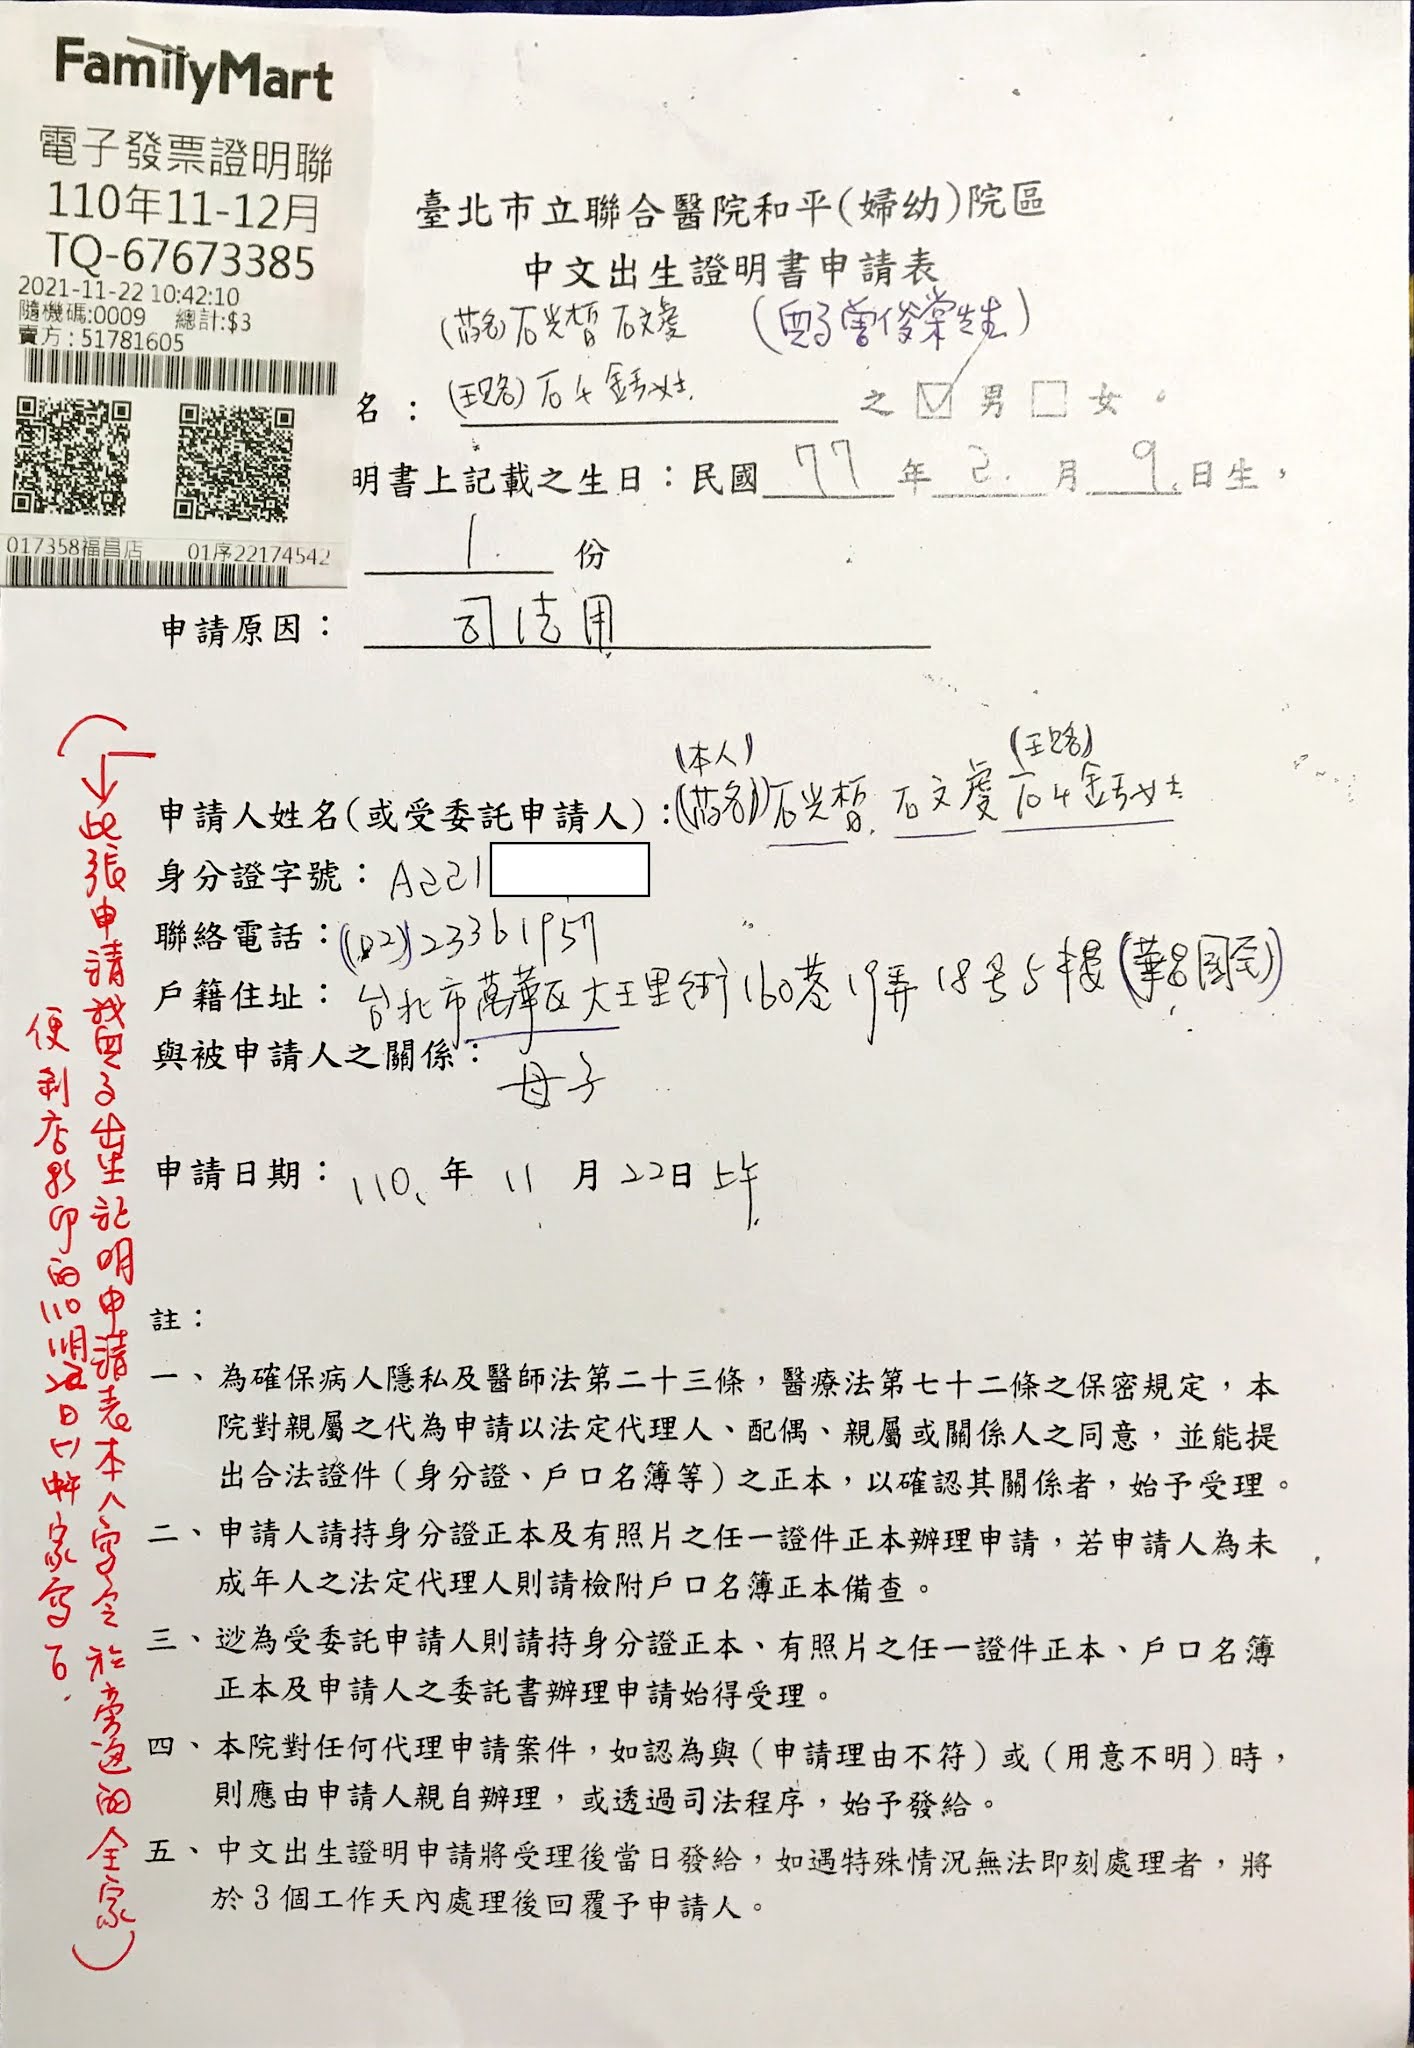 FamilyMart
電子發票證明聯
110年11-12月
TQ-67673385
2021-11-22 10:42:10
隨機碼:0009 總計:$3
賣方:51781605
017358福昌店 01序22174542
臺北市立聯合醫院和平(婦幼)院區
中文出生證明書申請表
石光皙 石文虔
名:
之 男 女。
明書上記載之生日:民國 77 年 2. 月 9. 日生,
1. 份
申請原因: 司法用
(本人)
申請人姓名(或受委託申請人): 石光皙. 石文虔
身分證字號: A221
聯絡電話:(02)23361957
戶籍住址: 台北市萬華区大王里 街160巷19弄18号5樓(華昌國宅)
與被申請人之關係:
母子
申請日期: 110、年 11 月 22日 上午
註:
一、為確保病人隱私及醫師法第二十三條,醫療法第七十二條之保密規定,本
院對親屬之代為申請以法定代理人、配偶、親屬或關係人之同意,並能提
出合法證件(身分證、戶口名簿等)之正本,以確認其關係者,始予受理。
二、申請人請持身分證正本及有照片之任一證件正本辦理申請,若申請人為未
成年人之法定代理人則請檢附戶口名簿正本備查。
三、逤為受委託申請人則請持身分證正本、有照片之任一證件正本、戶口名簿
正本及申請人之委託書辦理申請始得受理。
四、本院對任何代理申請案件,如認為與(申請理由不符)或(用意不明)時,
則應由申請人親自辦理,或透過司法程序,始予發給。
五、中文出生證明申請將受理後當日發給,如遇特殊情況無法即刻處理者,將
於3個工作天內處理後回覆予申請人。
(→此張申請我 子出生証明申請表本人寫 於旁邊的全家)
便利店影印的110 11月22日 家寫